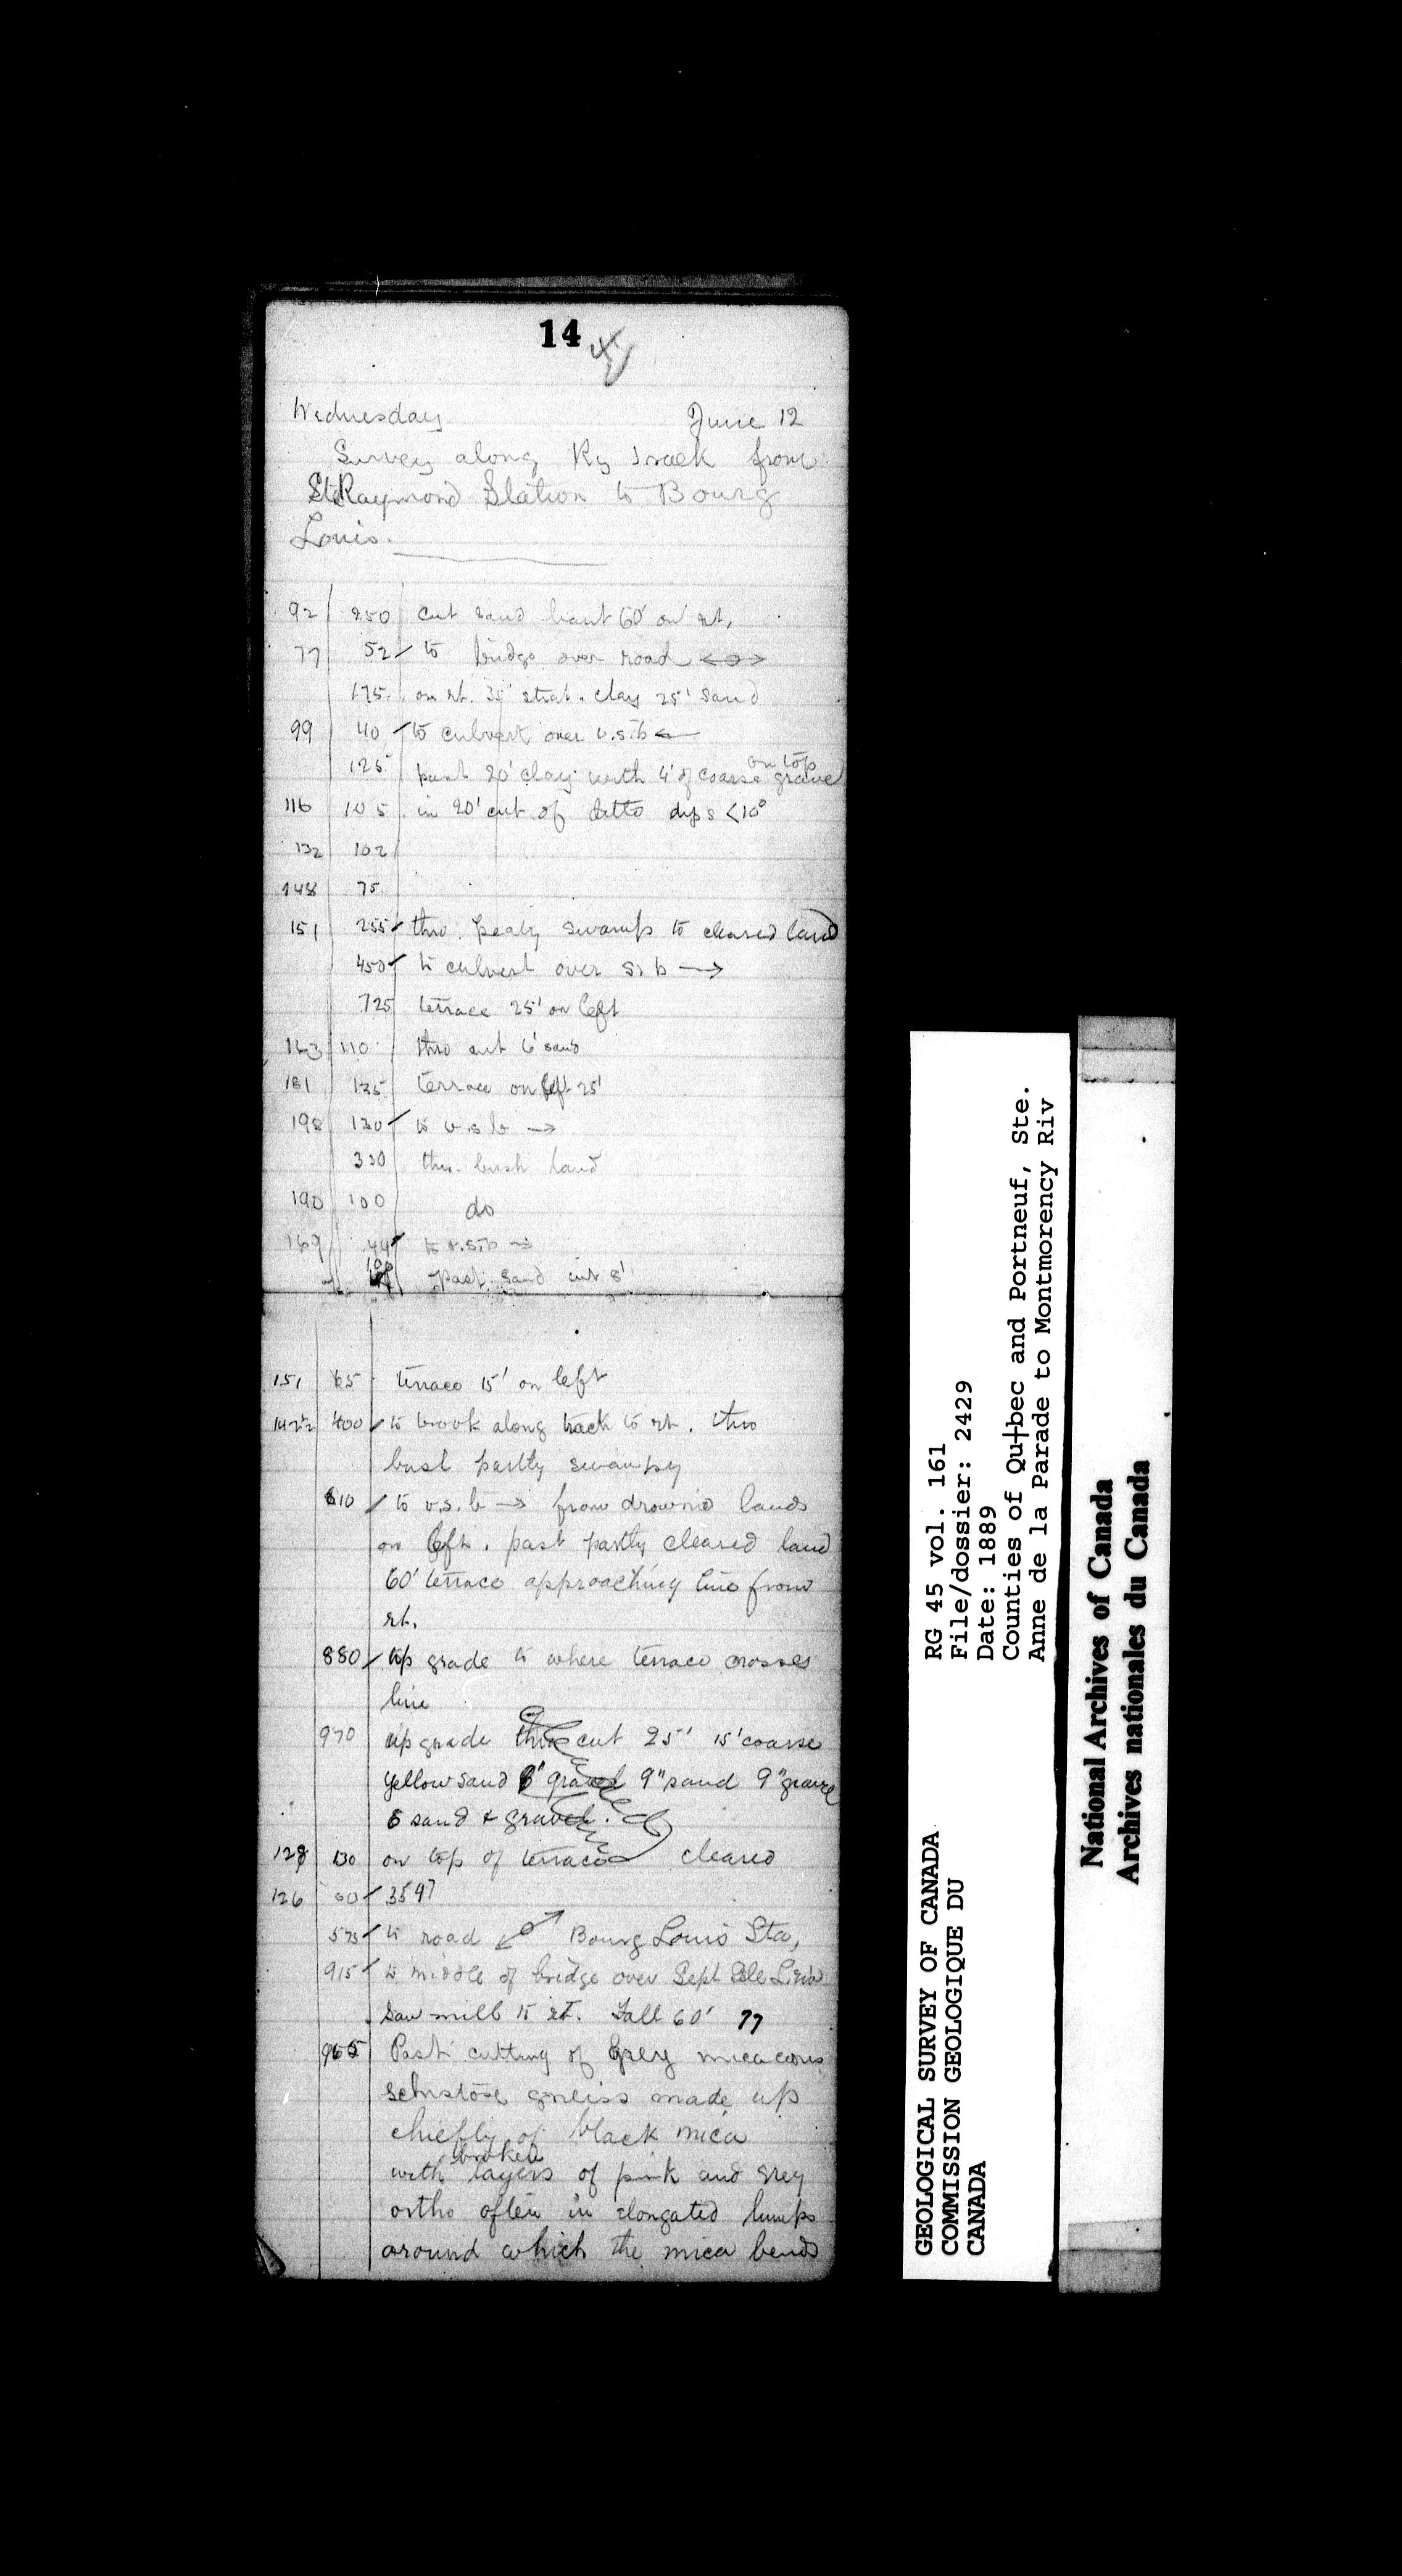 14
Wednesday June 12
Survey along Ry track from
St Raymond Station to Bourg
Louis.
92 250 cut sand 60' on rt.
77 52 to bridge over road
175 on rt. 35' strat. clay 25' sand
99 40 to culvert over v.s.b ←
125 past 20' clay with 4' of coarse gravel on top
116 105 in 20' cut of ditto dips <10°
132 102
148 75
151 255 thro. peaty swamp to cleared land
450 to culvert over s.b →
725 terrace 25' on left
163 110 thro cut 6' sand
181 135 terrace on left 25'
198 130 to v.s.b →
330 thro. bush land
190 100 do
169 44 to v.s.b →
past sand cut 8'
151 65 terrace 15' on left
142½ 400 to brook along track to rt. thro
bush partly swampy
610 to v.s.b → from drownd lands
on left. past partly cleared land
60' terrace approaching line from
rt.
880 up grade to where terrace crosses
line
970 up grade thro cut 25' 15' coarse
yellow sand 6" gravel 9" sand 9" gravel
6 sand & gravel.
128 130 on top of terrace cleared
126 60 3597
573 to road Bourg Louis Sta,
915 to middle of bridge over Sept Isle
saw mill to rt. Fall 60' 77
965 Past cutting of grey micaceous
schistose gneiss made up
chiefly of black mica
with broken layers of pink and grey
ortho often in elongated lumps
around which the mica bends
RG 45 vol. 161
File/dossier: 2429
Date: 1889
Counties of Qu†bec and Portneuf, Ste.
Anne de la Parade to Montmorency Riv
GEOLOGICAL SURVEY OF CANADA
COMMISSION GEOLOGIQUE DU
CANADA
National Archives of Canada
Archives nationales du Canada